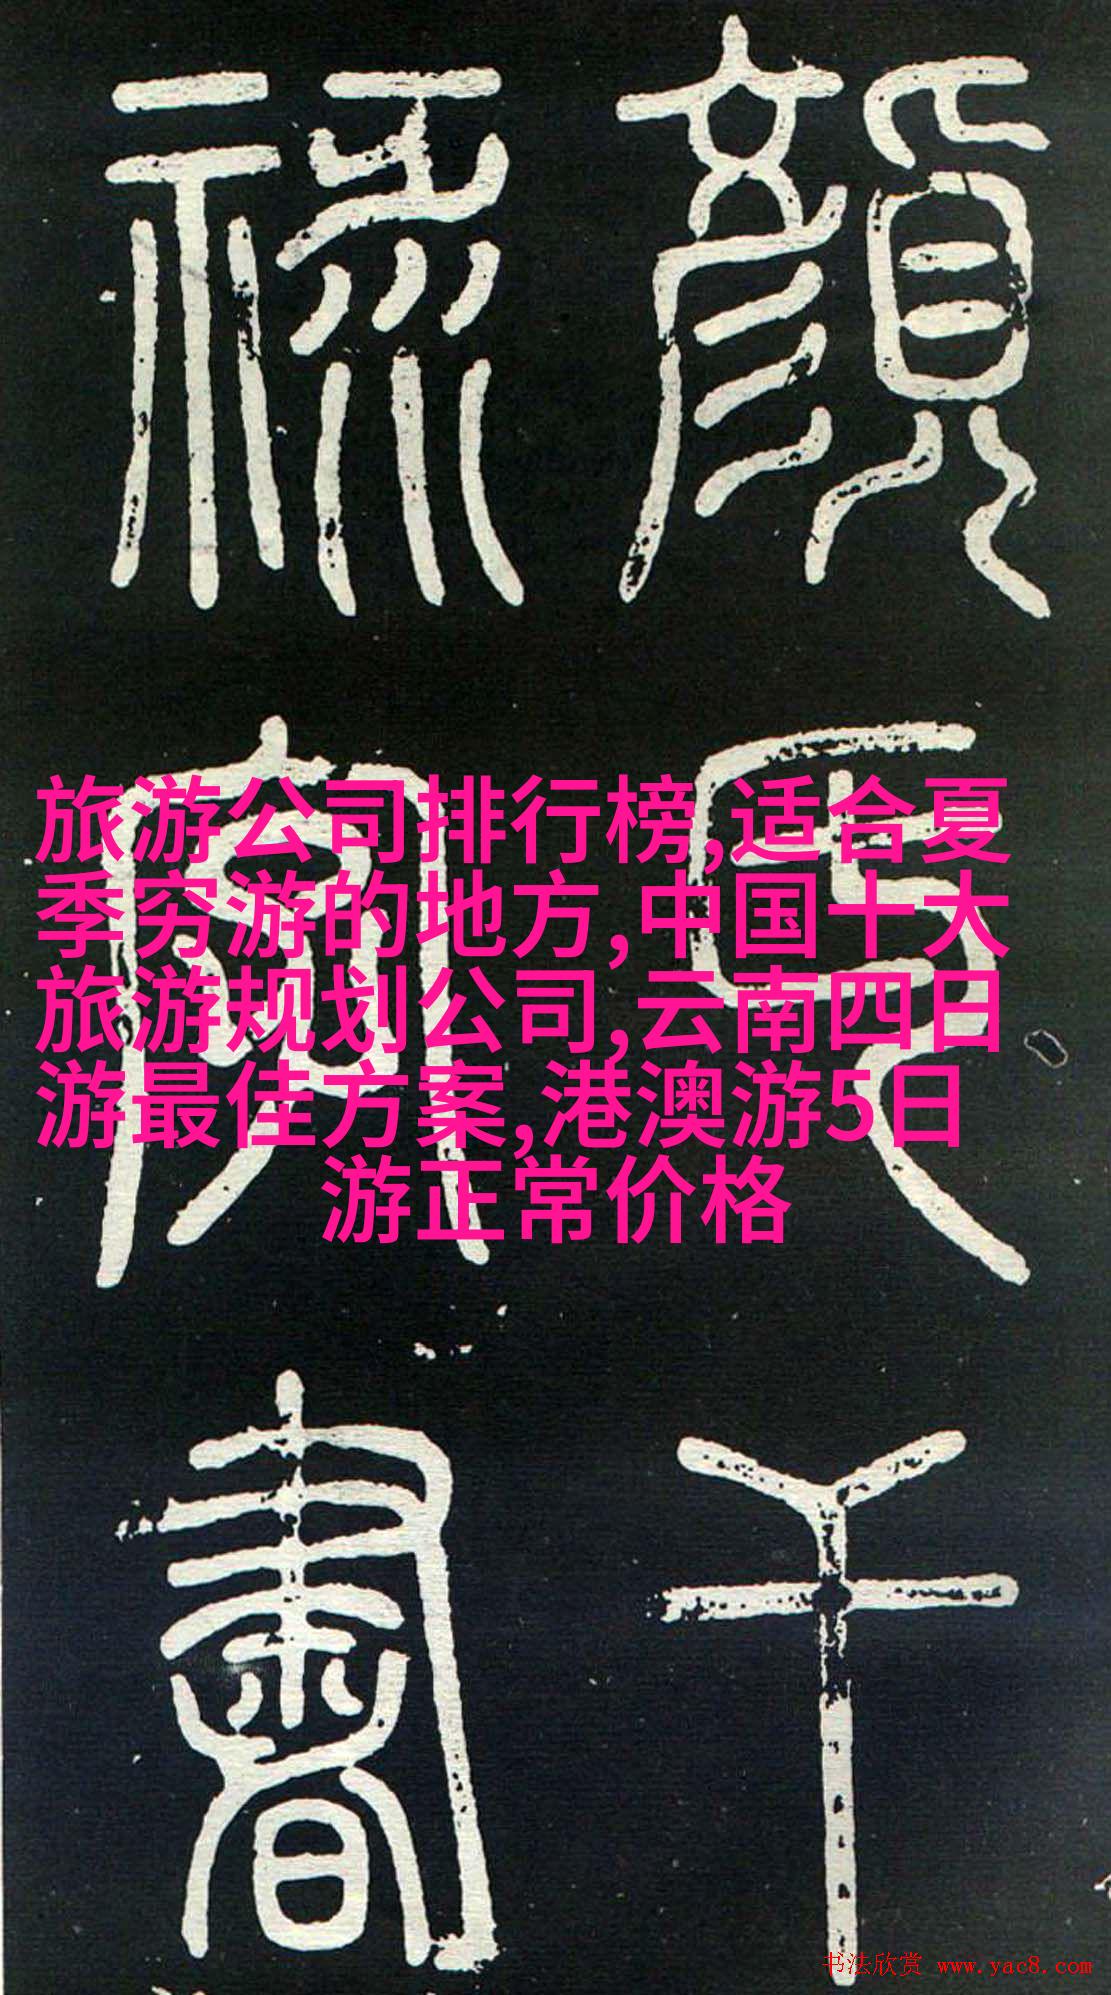 顔氏干
禄字書
旅游公司排行榜,适合夏
季穷游的地方,中国十大
旅游规划公司,云南四日
游最佳方案,港澳游5日
游正常价格
书法欣赏 www.yac8.com